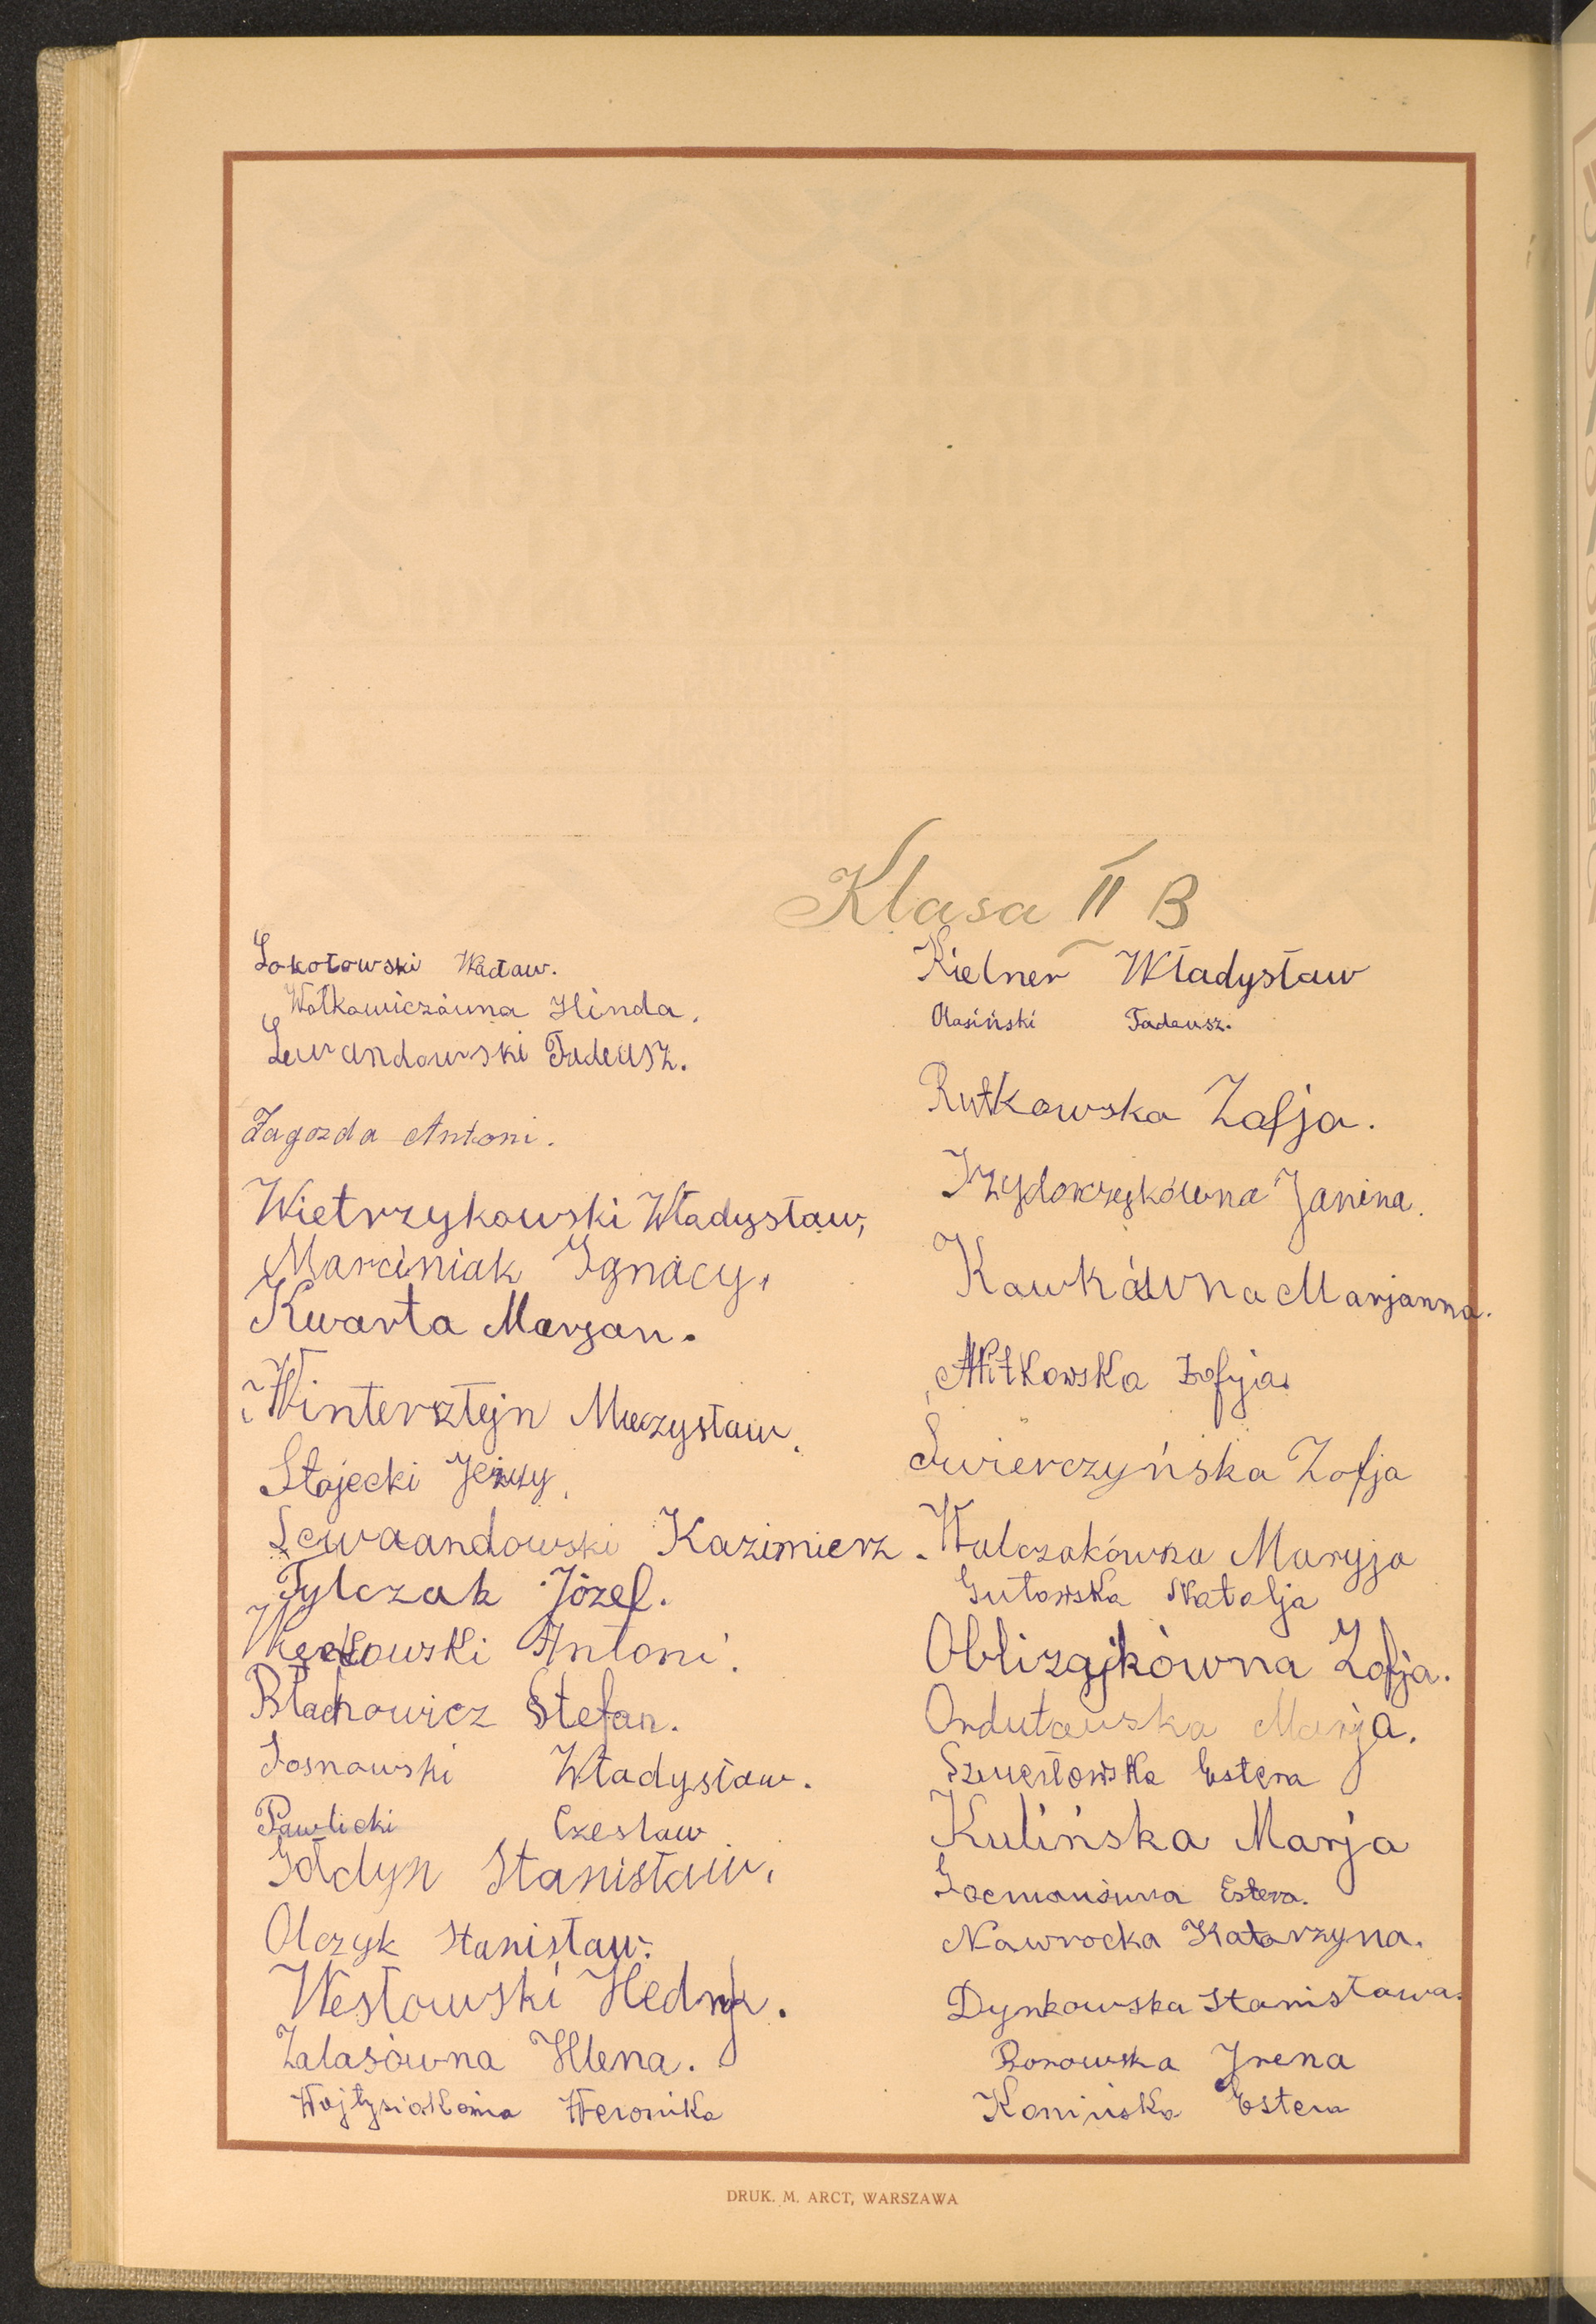 Klasa II B
Sokołowski Wacław.
Wołkowiczówna Hinda.
Lewandowski Tadeusz.
Zagozda Antoni.
Wietrzykowski Władysław,
Marciniak Ignacy.
Kwarta Marjan.
Wintersztejn Mieczysław.
Stojecki Jerzy
Lewaandowski Kazimierz.
Tylczak Józef.
Antoni.
Błachowicz Stefan.
Sosnowski Władysław.
Pawlicki Czesław
Gołdyn Stanisław.
Olczyk Stanisław.
Wesłowski
Zalasówna Hlena.
Weronika
Kielner Władysław
Olasiński Tadeusz.
Rutkowska Zofja.
Izydorczykówna Janina.
Kawkówna Marjanna.
Witkowska Zofyja.
Swierczyńska Zofja
Walczakówna Maryja
Gutowska Natalja
Oblizajkówna Zofja.
Ordutowska Marja.
Estera
Kulińska Marja
Estera.
Nawrocka Katarzyna.
Dynkowska Stanisława.
Borowska Irena
Konińska Estera
DRUK. M. ARCT, WARSZAWA